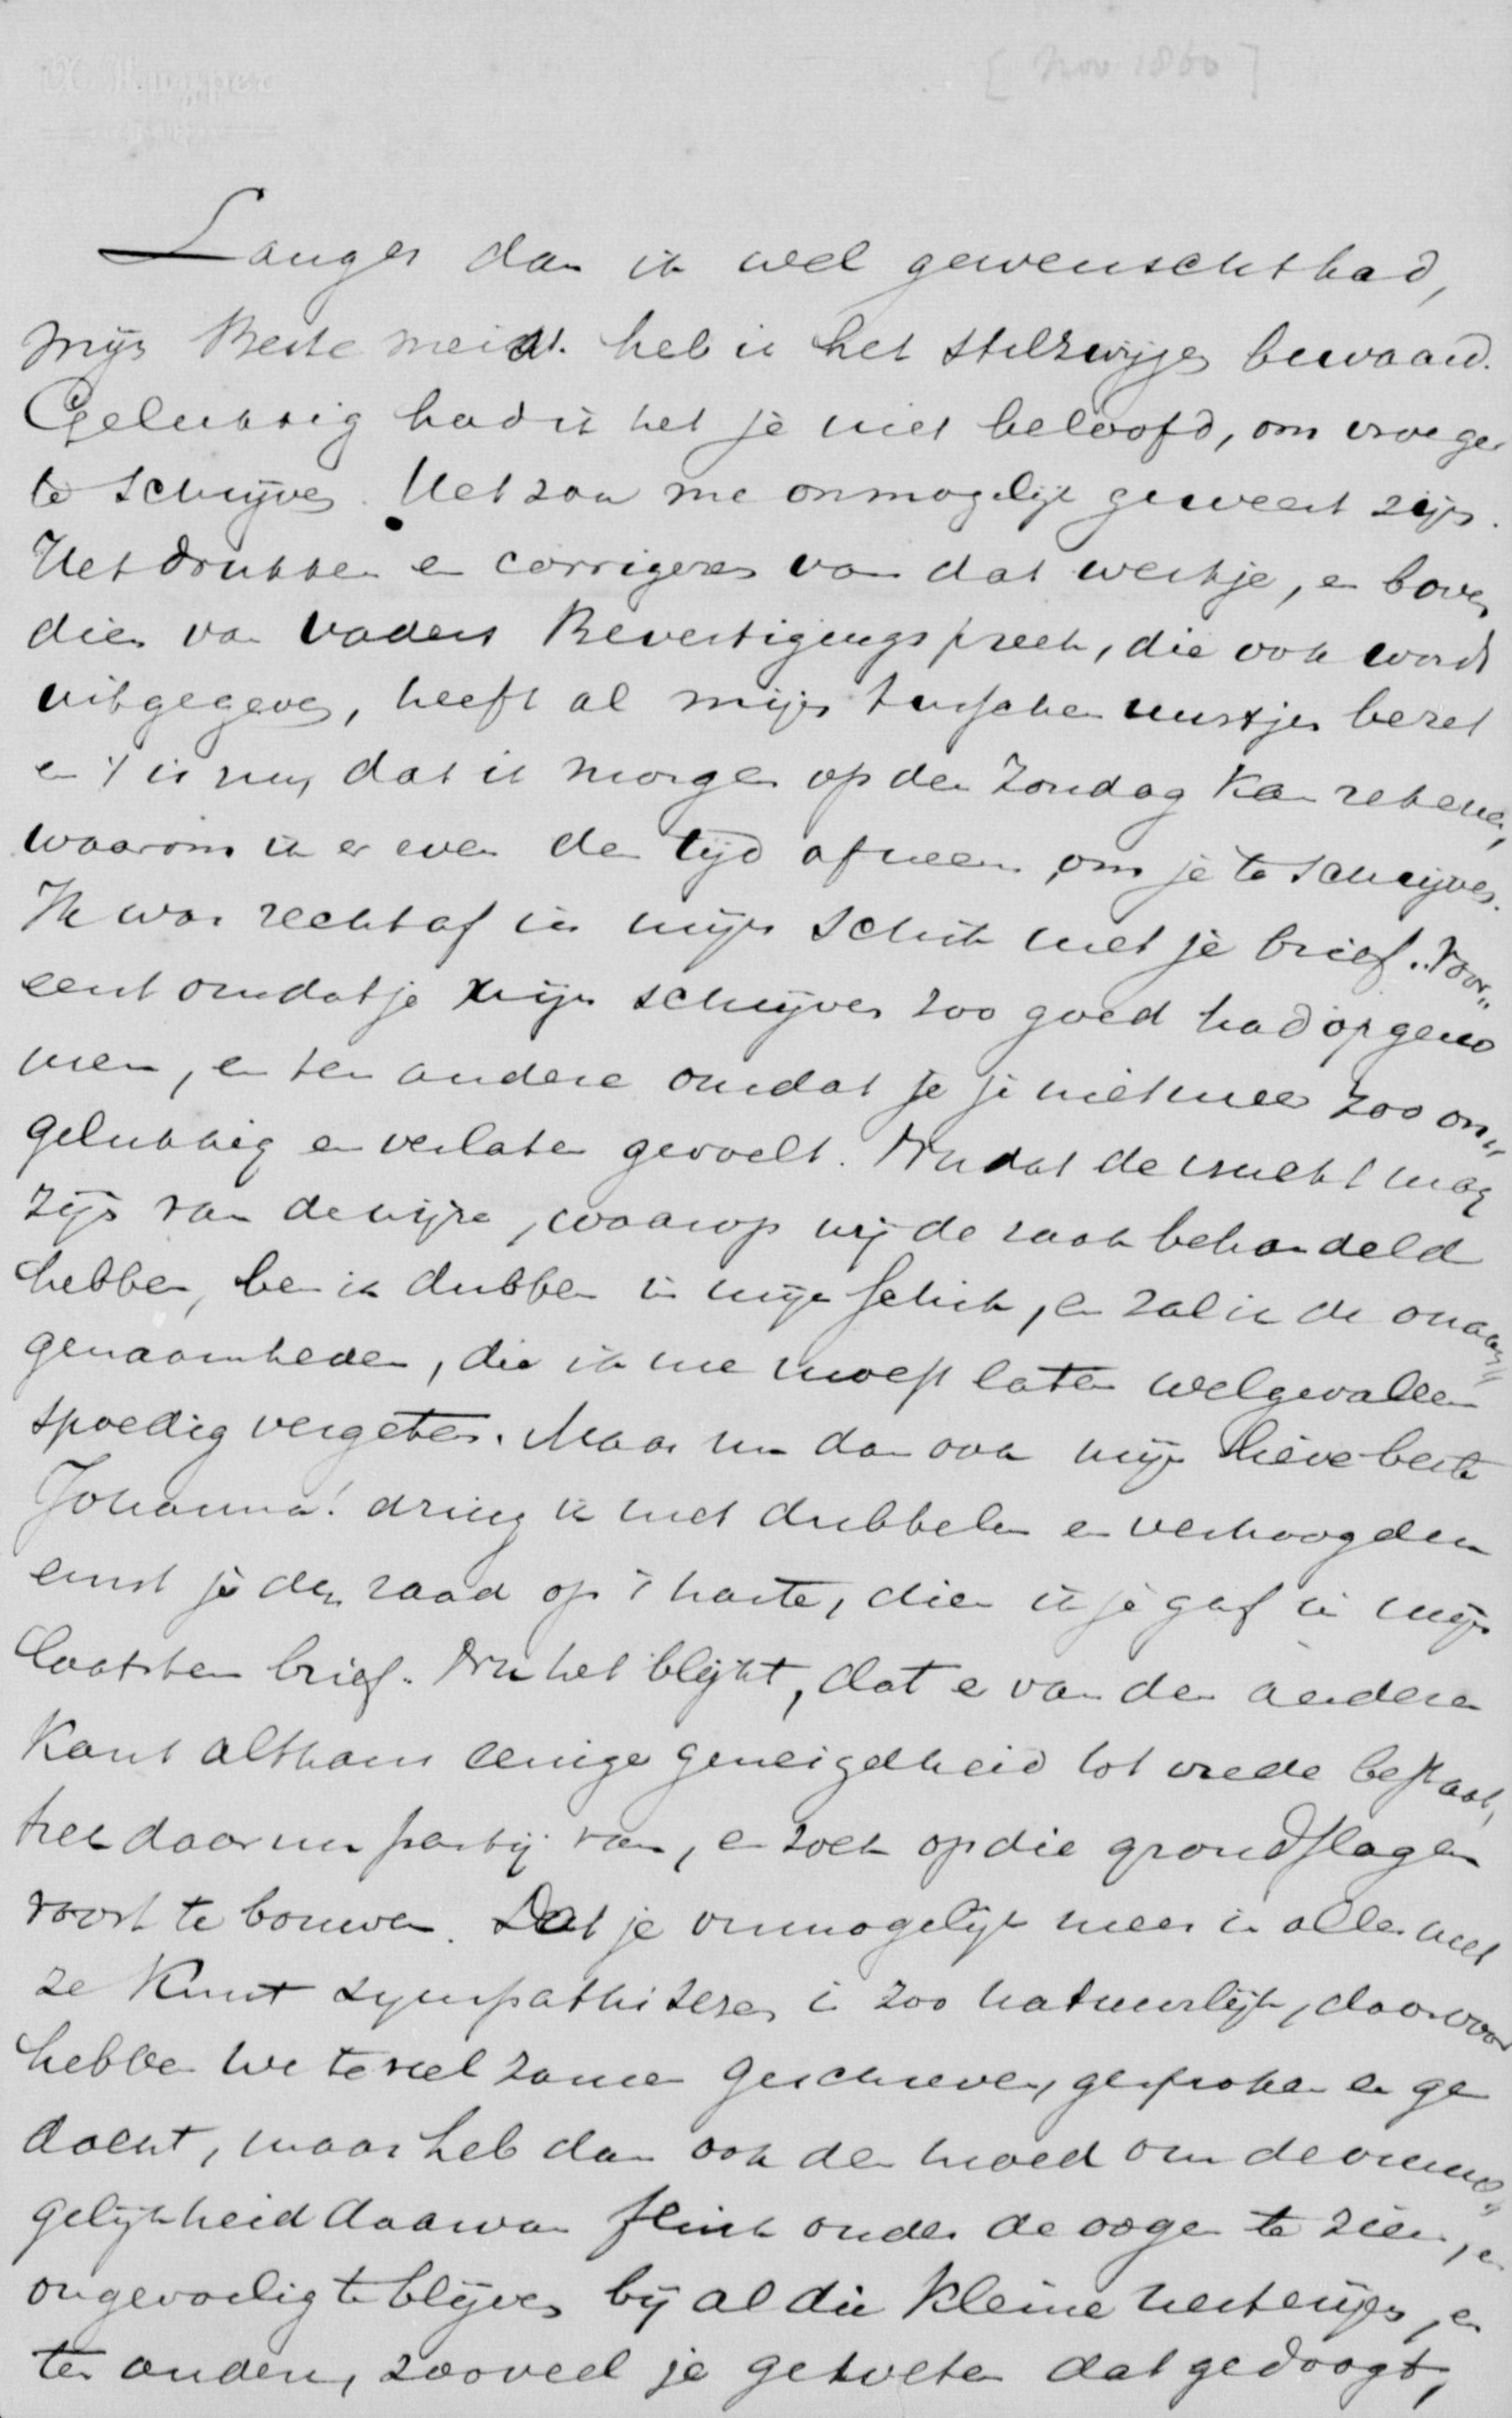 [Nov 1860]
Langer dan ik wel gewenscht had,
mijn Beste meid. heb ik het stilzwijgen bewaard.
Gelukkig had ik het je niet beloofd, om vroeger
te schrijven. Het zou me onmogelijk geweest zijn.
Het drukken en corrigeren van dat werkje, en boven
dien van vaders Bevestigingspreek, die ook wordt
uitgegeven, heeft al mijn tusschen uurtjes bezet
en 't is nu, dat ik morgen op den Zondag kan rekenen,
waarom ik er even den tijd afneem, om je te schrijven.
Ik was rechtaf in mijn schik met je brief. Voor„
eerst omdat je mijn schrijven zoo goed had opgeno
men, en ten andere omdat je je niet meer zoo on„
gelukkig en verlaten gevoelt. Nu dat de vrucht mag
zijn van de wijze, waarop wij de zaak behandeld
hebben, ben ik dubbel in mijn schik, en zal ik de onaan„
genaamheden, die ik me moest laten welgevallen
spoedig vergeten. Maar nu dan ook mijn lieve beste
Johanna! dring ik met dubbelen en verhoogden
ernst je den raad op 't harte, dien ik je gaf in mijn
laatsten brief. Nu het blijkt, dat er van den anderen
kant althans eenige geneigdheid tot vrede bestaat,
trek daar nu partij van, en zoek op die grondslagen
voort te bouwen. Dat je onmogelijk meer in alles met
ze kunt sympathiseren is zoo natuurlijk, daarvoor
hebben we te veel zamen geschreven, gesproken en ge
dacht, maar heb dan ook den moed om de onmo„
gelijkheid daarvan flink onder de oogen te zien, en
ongevoelig te blijven bij al die kleine
ten andere, zooveel je geweten dat gedoogt,